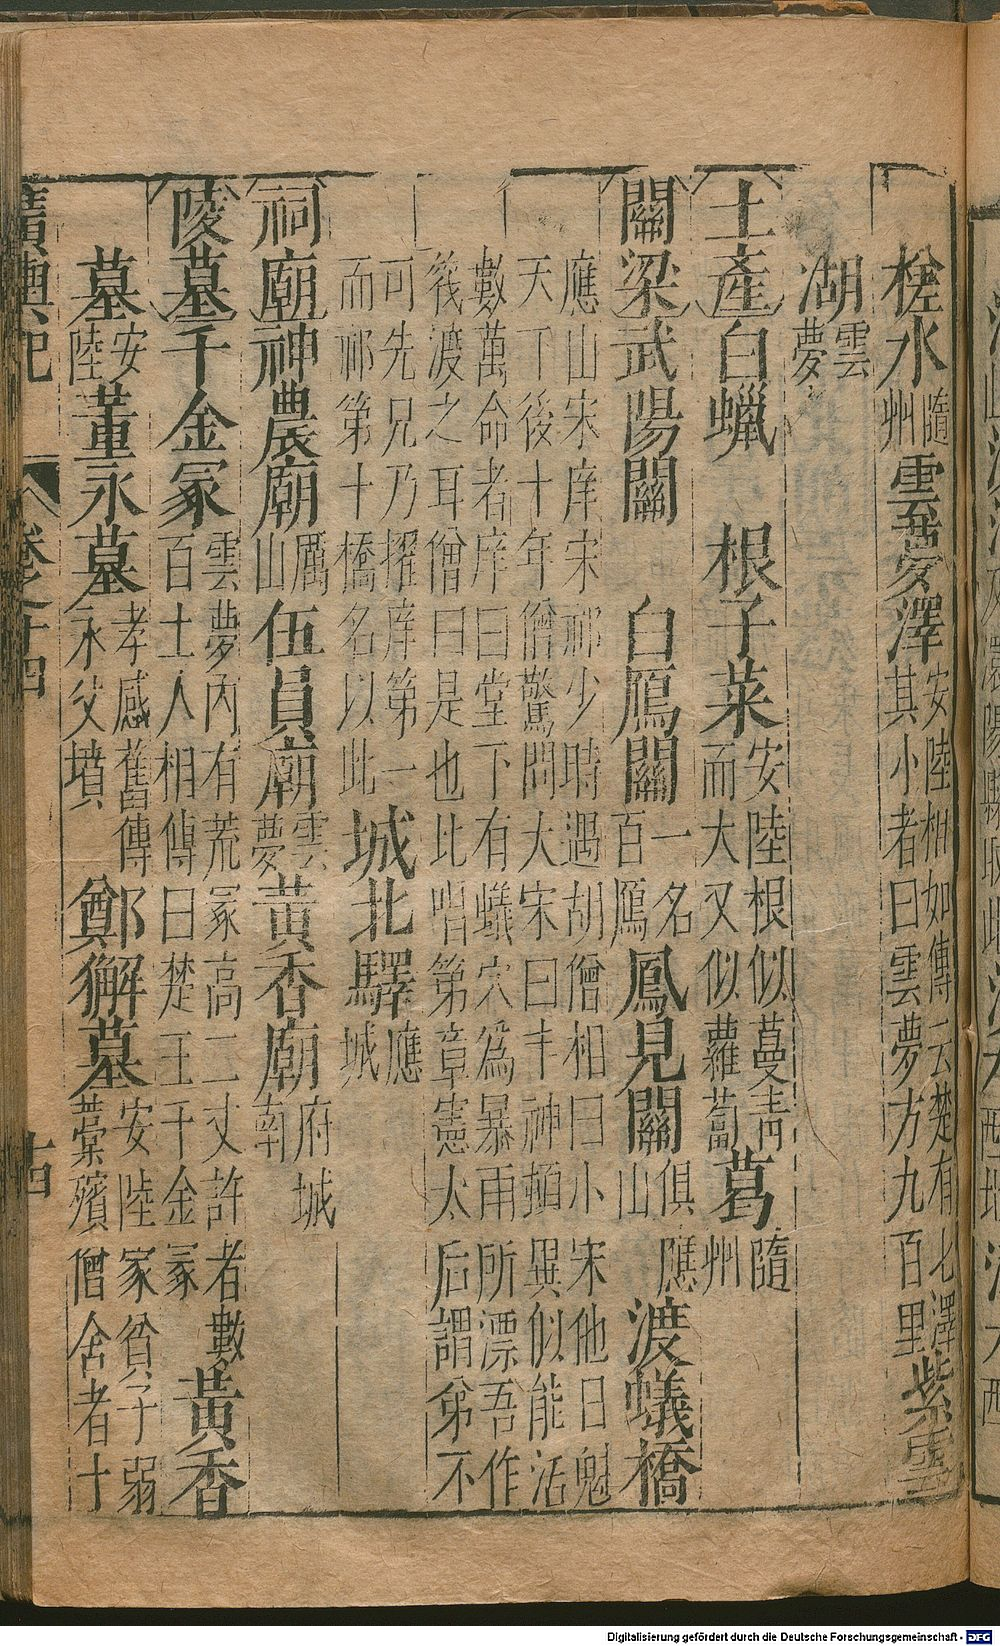 槎水隨州雲夢澤安陸相如傳云楚有七澤其小者曰雲夢方九百里紫雲
湖雲夢
土產白蠟 根子菜安陸根似蔓青而大又似蘿蔔葛隨州
關梁武陽關 白鴈關一名百鴈鳳見關俱應山渡蟻橋
應山宋庠宋祁少時遇胡僧相曰小宋他日魁
天下後十年僧驚問大宋曰丰神頓異似能活
數萬命者庠曰堂下有蟻穴為暴雨所漂吾作
筏渡之耳僧曰是也比唱第章憲太后謂弟不
可先兄乃擢庠第一
而祁第十橋名以此城北驛應城
祠廟神農廟厲山伍員廟雲夢黃香廟府城南
陵墓千金冢雲夢內有荒冢高二丈許者數百土人相傳曰楚王千金冢黃香
墓安陸董永墓孝感舊傳永父墳鄭獬墓安陸家貧子弱藁殯僧舍者十
廣輿記 卷之十四 十四
Digitalisierung gefördert durch die Deutsche Forschungsgemeinschaft - DFG